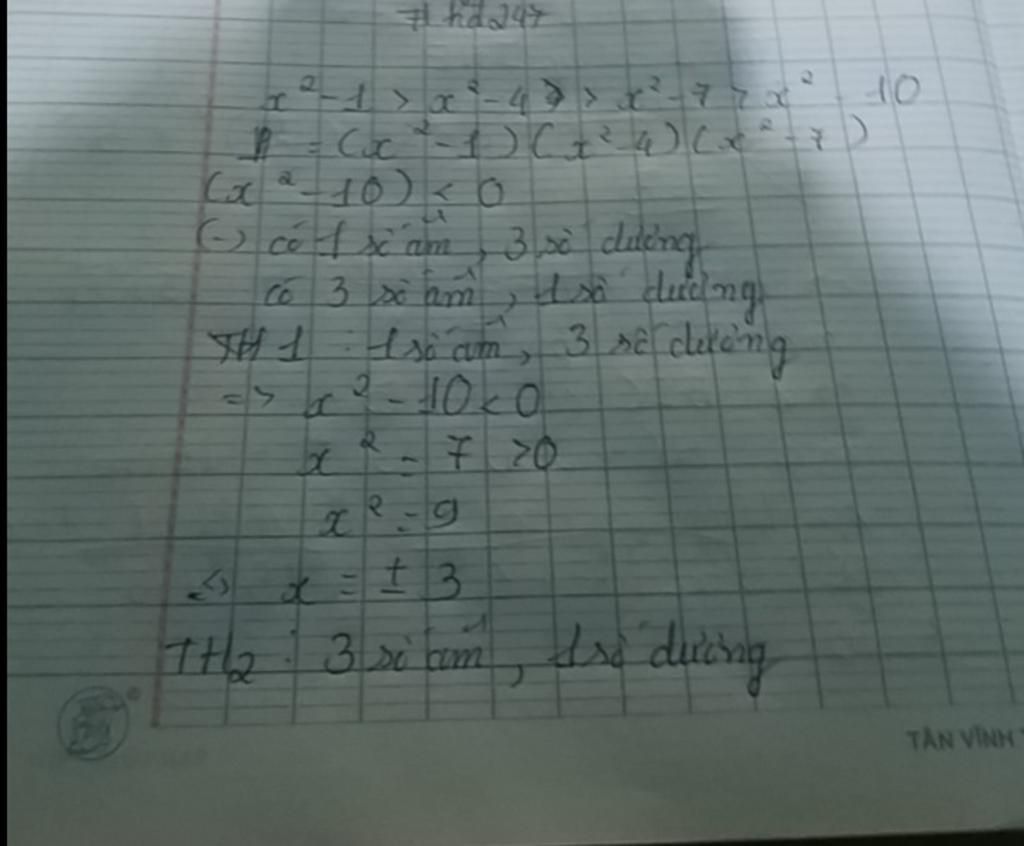 hd247
x² - 1 > x² - 4 > x² - 7 > x² - 10
= (x² - 1)(x² - 4)(x² - 7)
(x² - 10) < 0
(-) có 1 số âm, 3 số dương
có 3 số âm, 1 số dương
TH1 : 1 số âm, 3 số dương
=> x² - 10 < 0
x² - 7 > 0
x² = 9
<=> x = ± 3
TH2 : 3 số âm, 1 số dương
TÂN VĨNH